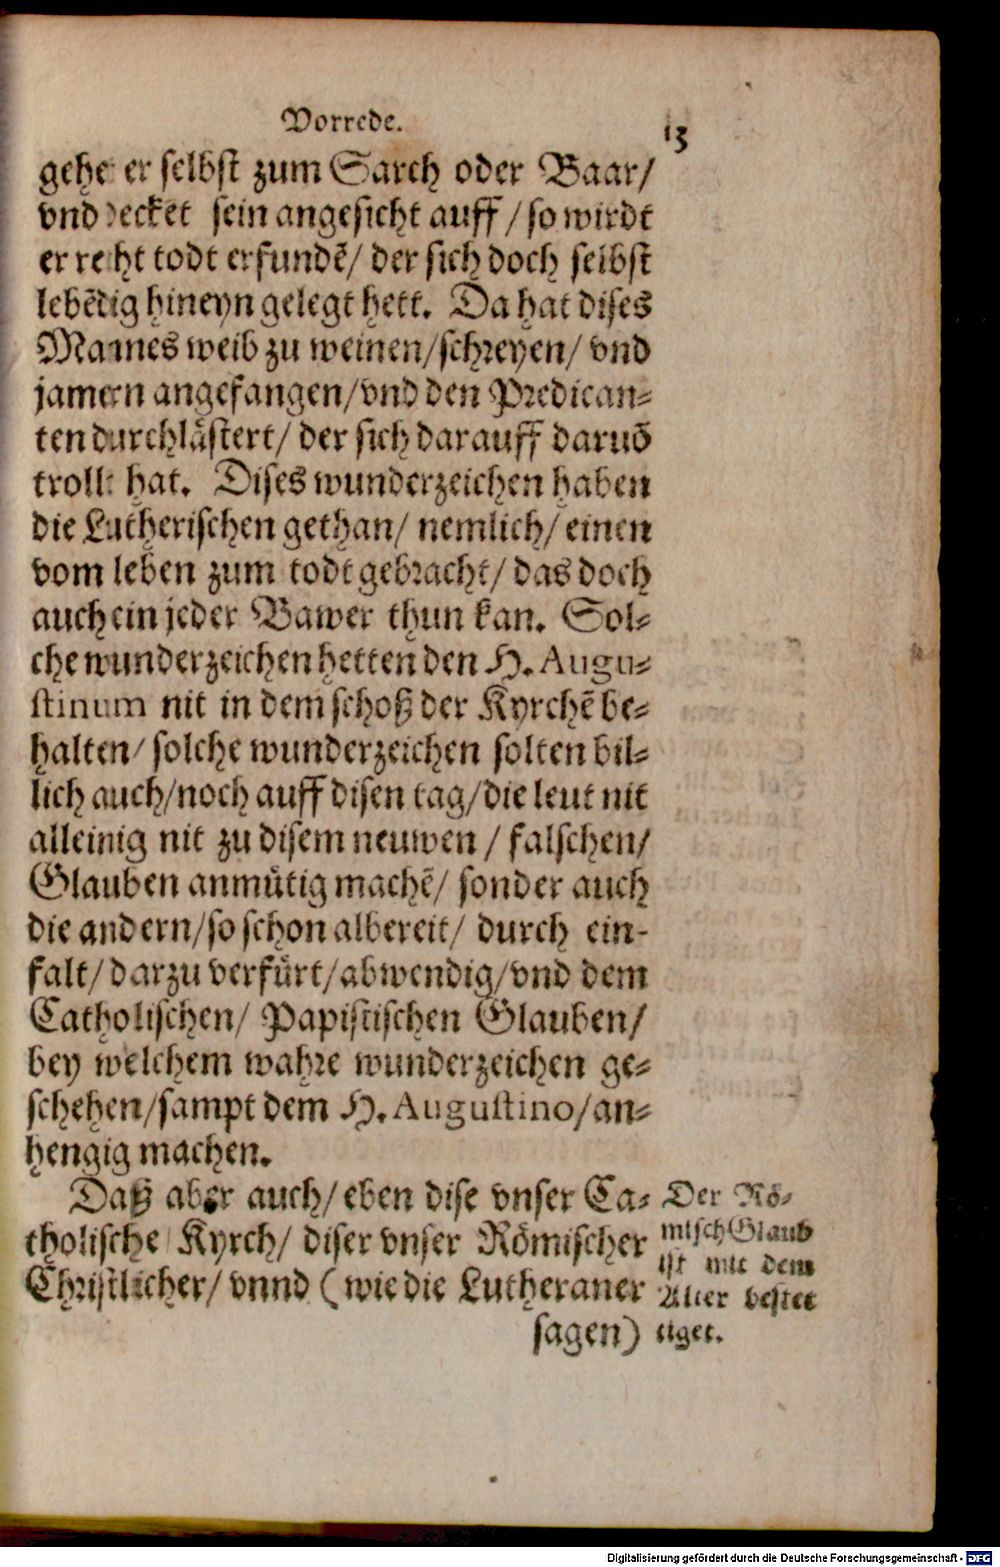 Vorrede. 13
gehe er selbst zum Sarch oder Baar/
vnd decket sein angesicht auff/so wirdt
er recht todt erfundē/ der sich doch selbst
lebēdig hineyn gelegt hett. Da hat dises
Mannes weib zu weinen/schreyen/ vnd
jamern angefangen/vnd den Predican-
ten durchlåstert/ der sich darauff daruō
trollt hat. Dises wunderzeichen haben
die Lutherischen gethan/ nemlich/ einen
vom leben zum todt gebracht/ das doch
auch ein jeder Bawer thun kan. Sol-
che wunderzeichen hetten den H. Augu-
stinum nit in dem schoß der Kyrchē be-
halten/ solche wunderzeichen solten bil-
lich auch/noch auff disen tag/die leut nit
alleinig nit zu disem neuwen / falschen/
Glauben anmůtig machē/ sonder auch
die andern/so schon albereit/ durch ein-
falt/ darzu verfůrt/abwendig/vnd dem
Catholischen/ Papistischen Glauben/
bey welchem wahre wunderzeichen ge-
schehen/sampt dem H. Augustino/an-
hengig machen.
Daß aber auch/ eben dise vnser Ca-
tholische Kyrch/ diser vnser Römischer
Christlicher/ vnnd (wie die Lutheraner
sagen)
Der Rö-
misch Glaub
ist mit dem
Alter bestet
tiget.
Digitalisierung gefördert durch die Deutsche Forschungsgemeinschaft - DFG